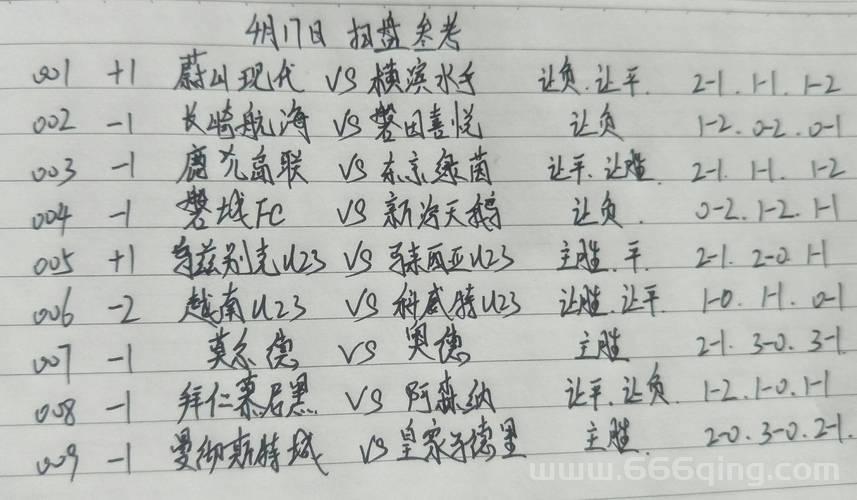 4月17日 扫盘参考
001 +1 蔚山现代 VS 横滨水手 让负.让平. 2-1. 1-1. 1-2
002 -1 长崎航海 VS 磐田喜悦 让负 1-2. 0-2. 0-1
003 -1 鹿儿岛联 VS 东京绿茵 让平.让胜. 2-1. 1-1. 1-2
004 -1 磐城FC VS 新泻天鹅 让负 0-2. 1-2. 1-1
005 +1 乌兹别克U23 VS 马来西亚U23 主胜.平. 2-1. 2-0. 1-1
006 -2 越南U23 VS 科威特U23 让胜.让平. 1-0. 1-1. 0-1
007 -1 莫尔德 VS 奥德 主胜 2-1. 3-0. 3-1.
008 -1 拜仁慕尼黑 VS 阿森纳 让平.让负. 1-2. 1-0. 1-1
009 -1 曼彻斯特城 VS 皇家马德里 主胜. 2-0. 3-0. 2-1.
www.666qing.com